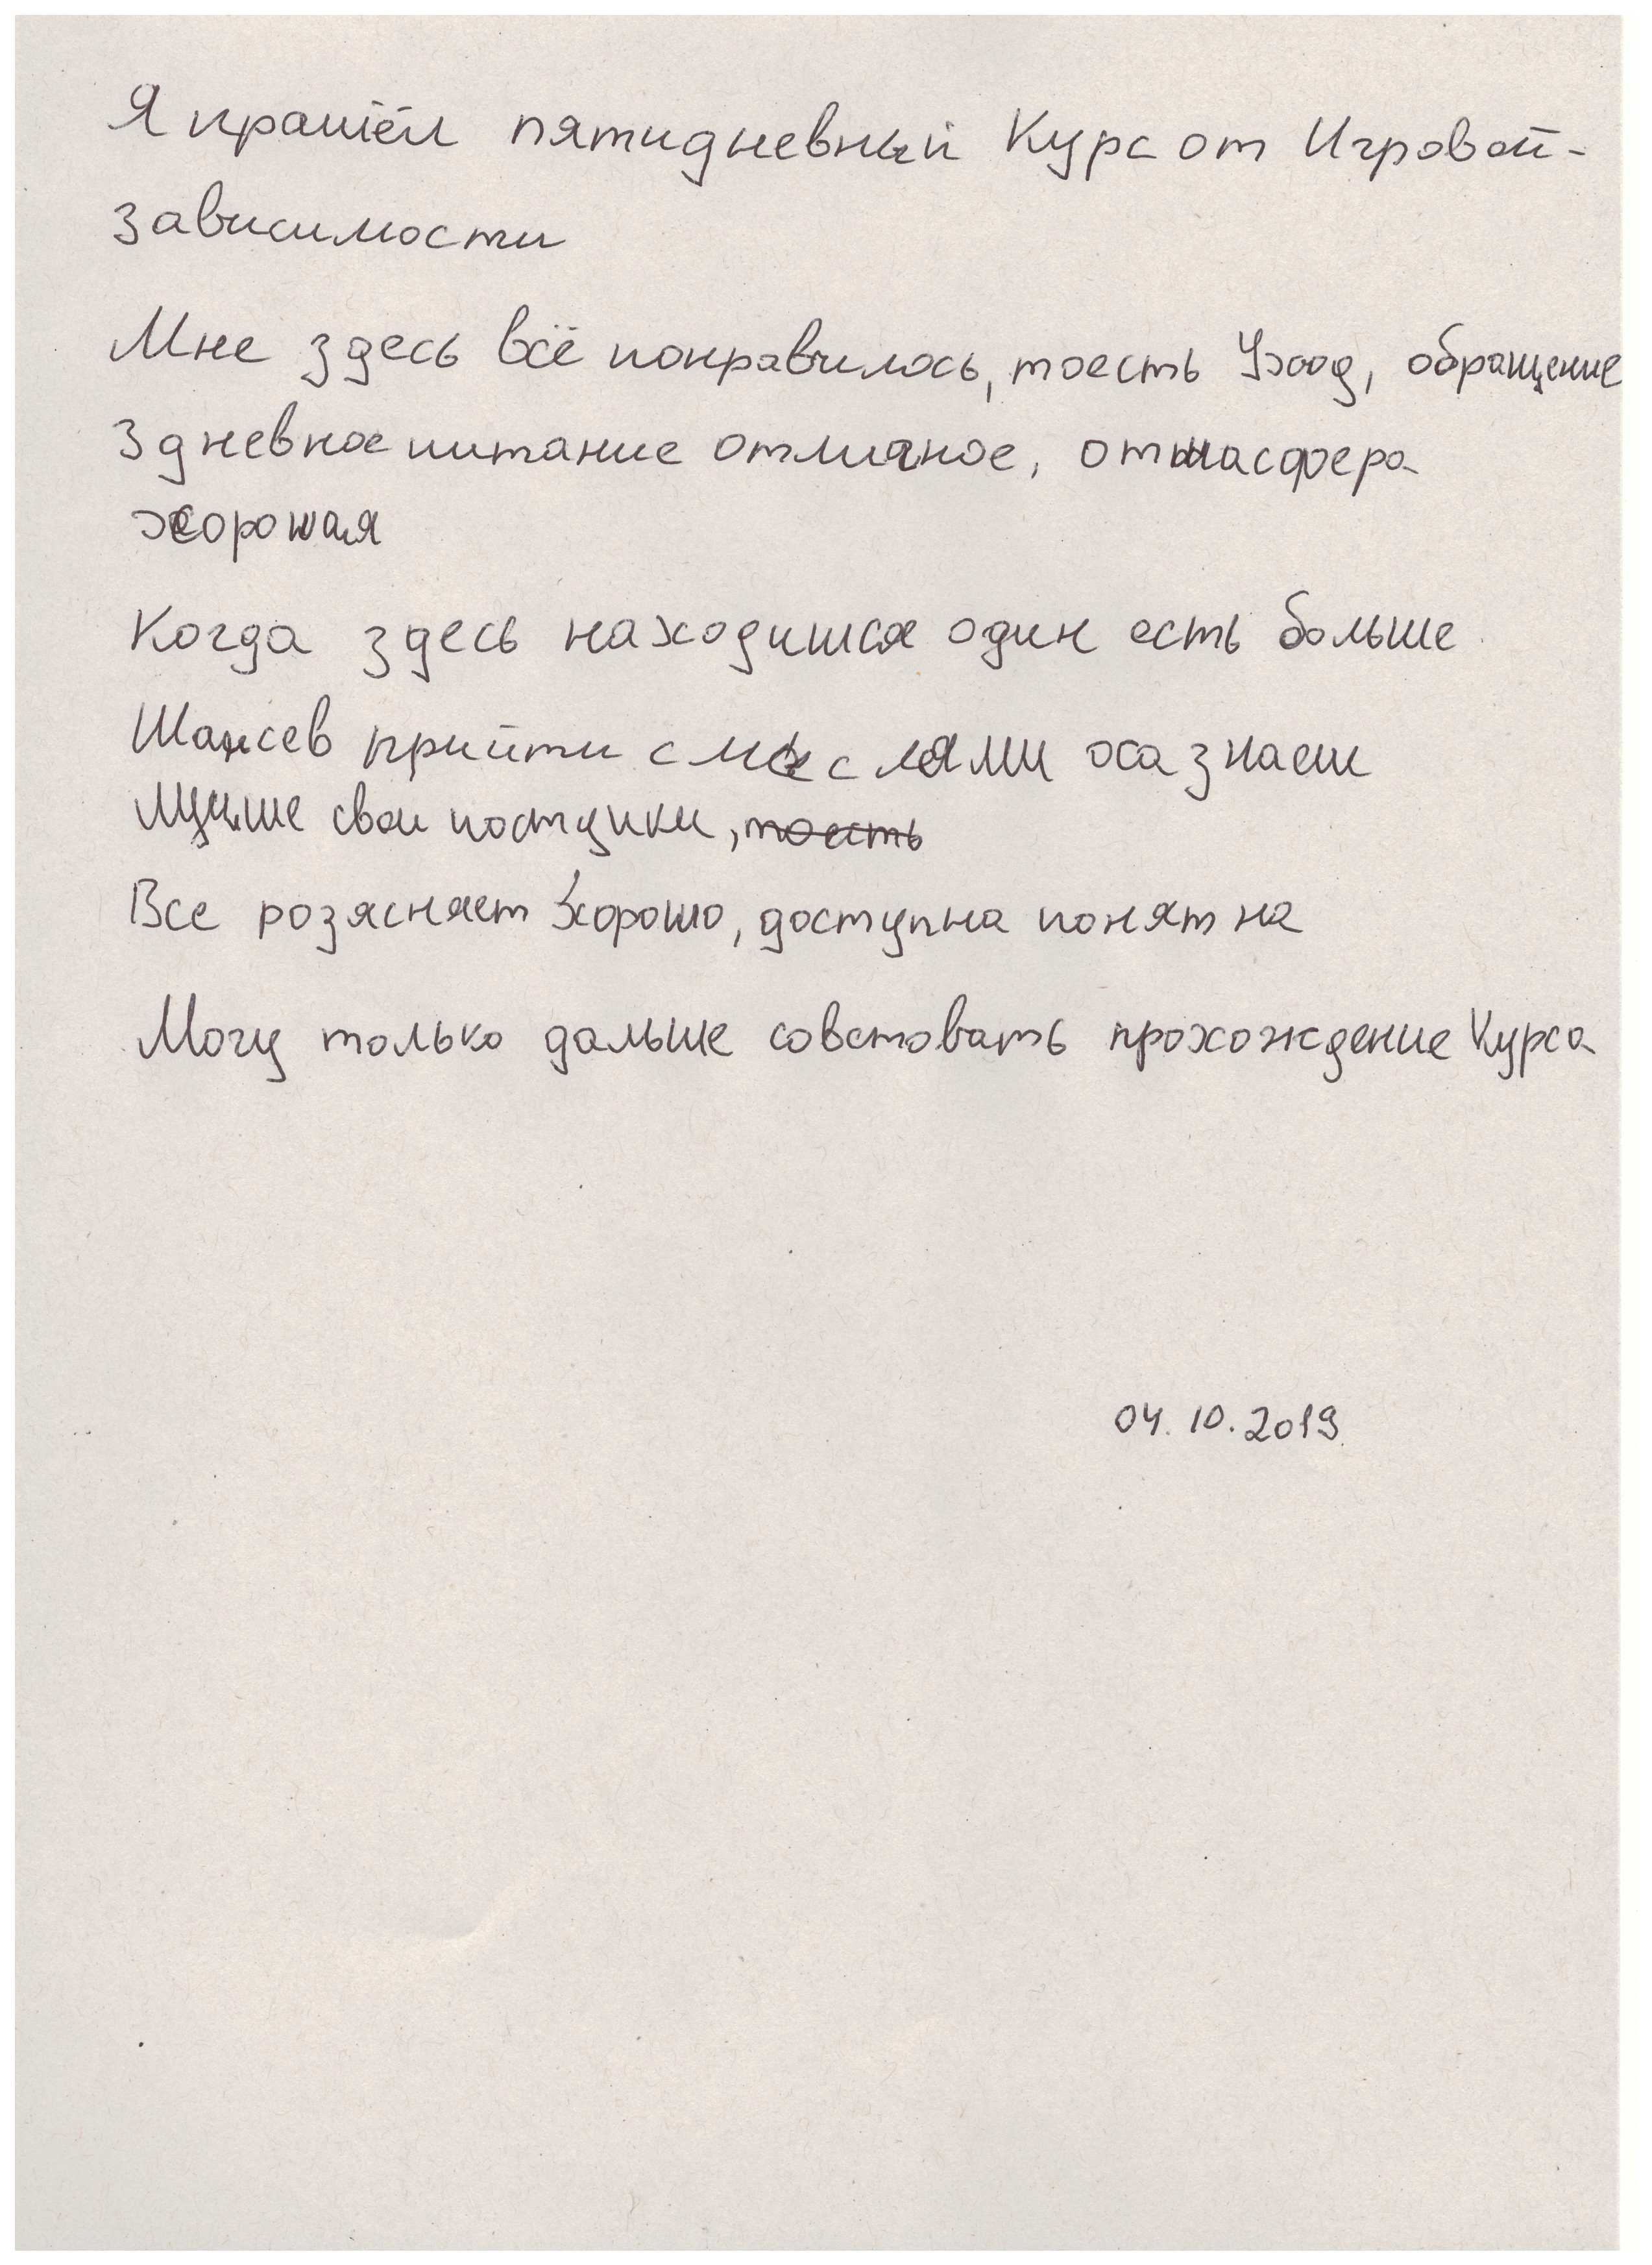 Я прашёл пятидневный Курс от Игровой-
зависимости
Мне здесь всё понравилось, тоесть Уход, обращение
3 дневное питание отличное, отмасфера
хорошая
Когда здесь находишся один есть больше
Шансев прийти с мыслями осазнаеш
Лучше свои поступки, тоесть
Все розясняет хорошо, доступна понятна
Могу только дальше совстовать прохождение Курса
04.10.2019